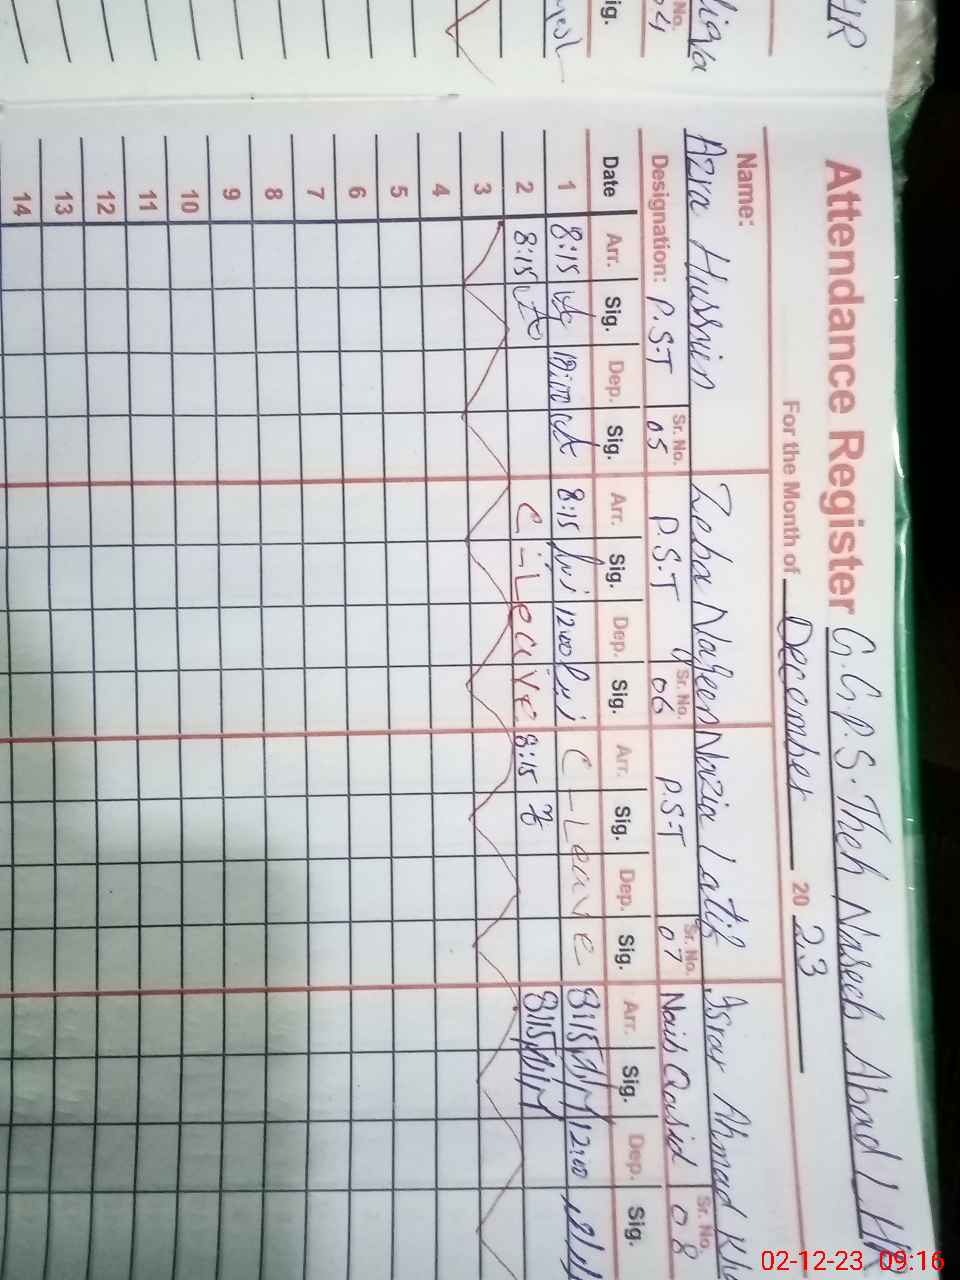 Attendance Register G.G.P.S. Theh Naseh Abad 1. HR
For the Month of December 20 23
Name:
Azra Hussien Zeba Nazeen Nazia Latif Israr Ahmad
Designation: P.S.T Sr. No. 05 P.S.T Sr. No. 06 P.S.T Sr. No. 07 Naib Qasid Sr. No. 08
Date Arr. Sig. Dep. Sig. Arr. Sig. Dep. Sig. Arr. Sig. Dep. Sig. Arr. Sig. Dep. Sig.
1 8:15 12:00 8:15 12:00 C-Leave 8:15 12:00
2 8:15 C-Leave 8:15 8:15
3
4
5
6
7
8
9
10
11
12
13
14
HR
No.
04
ig.
02-12-23 09:16